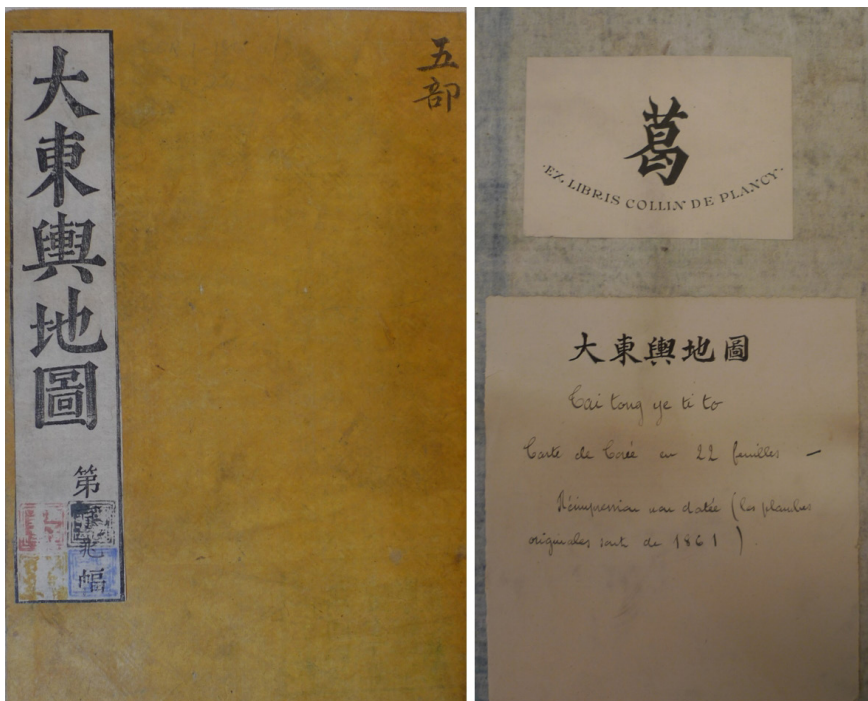 大東輿地圖
第
幅
五部
葛
·EX LIBRIS COLLIN DE PLANCY·
大東輿地圖
Tai tong ye ti to
Carte de Corée en 22 feuilles —
Réimpression non datée (les planches
originales sont de 1861).